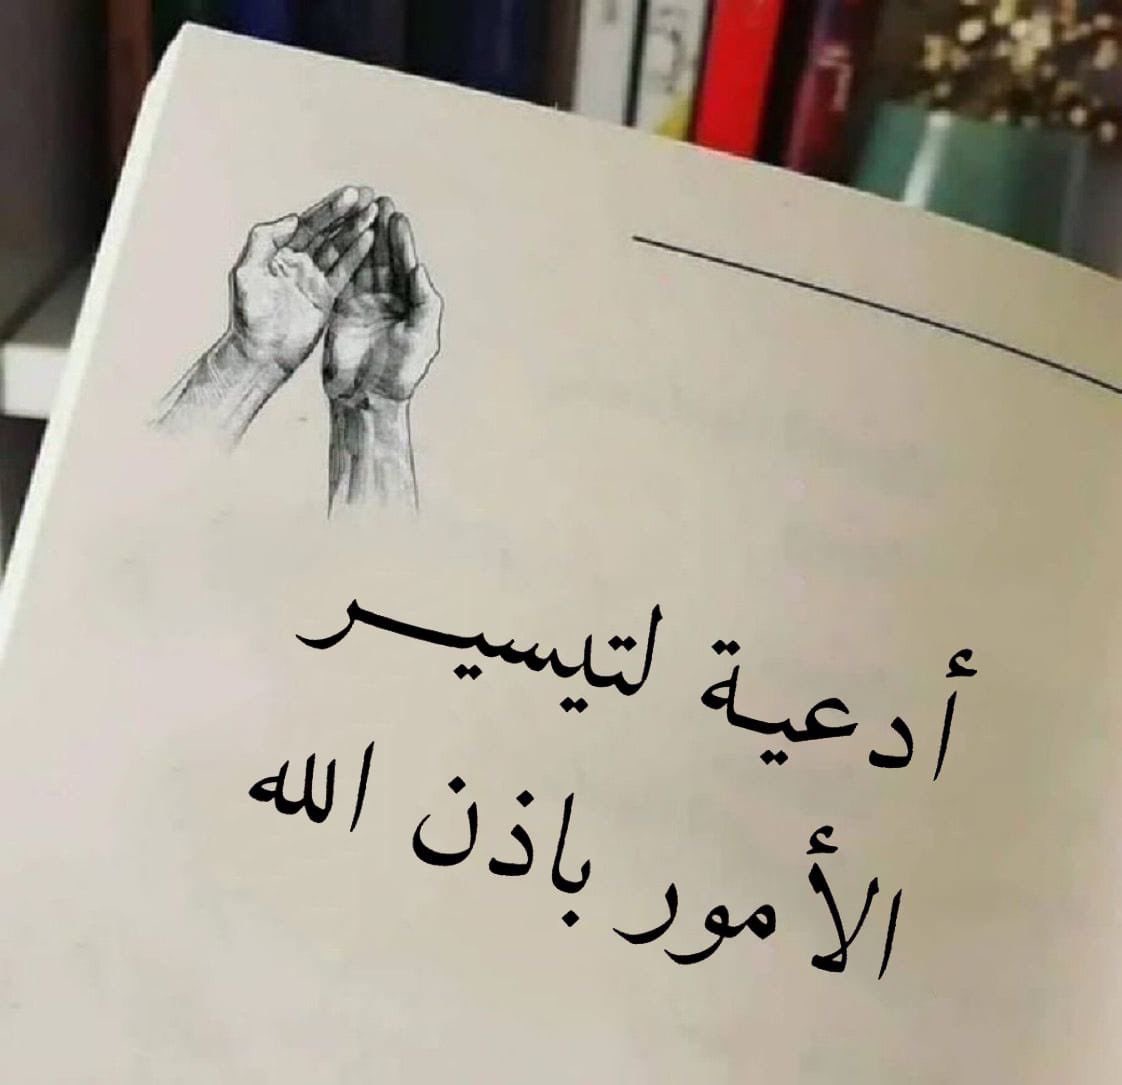 أدعية لتيسير
الأمور باذن الله